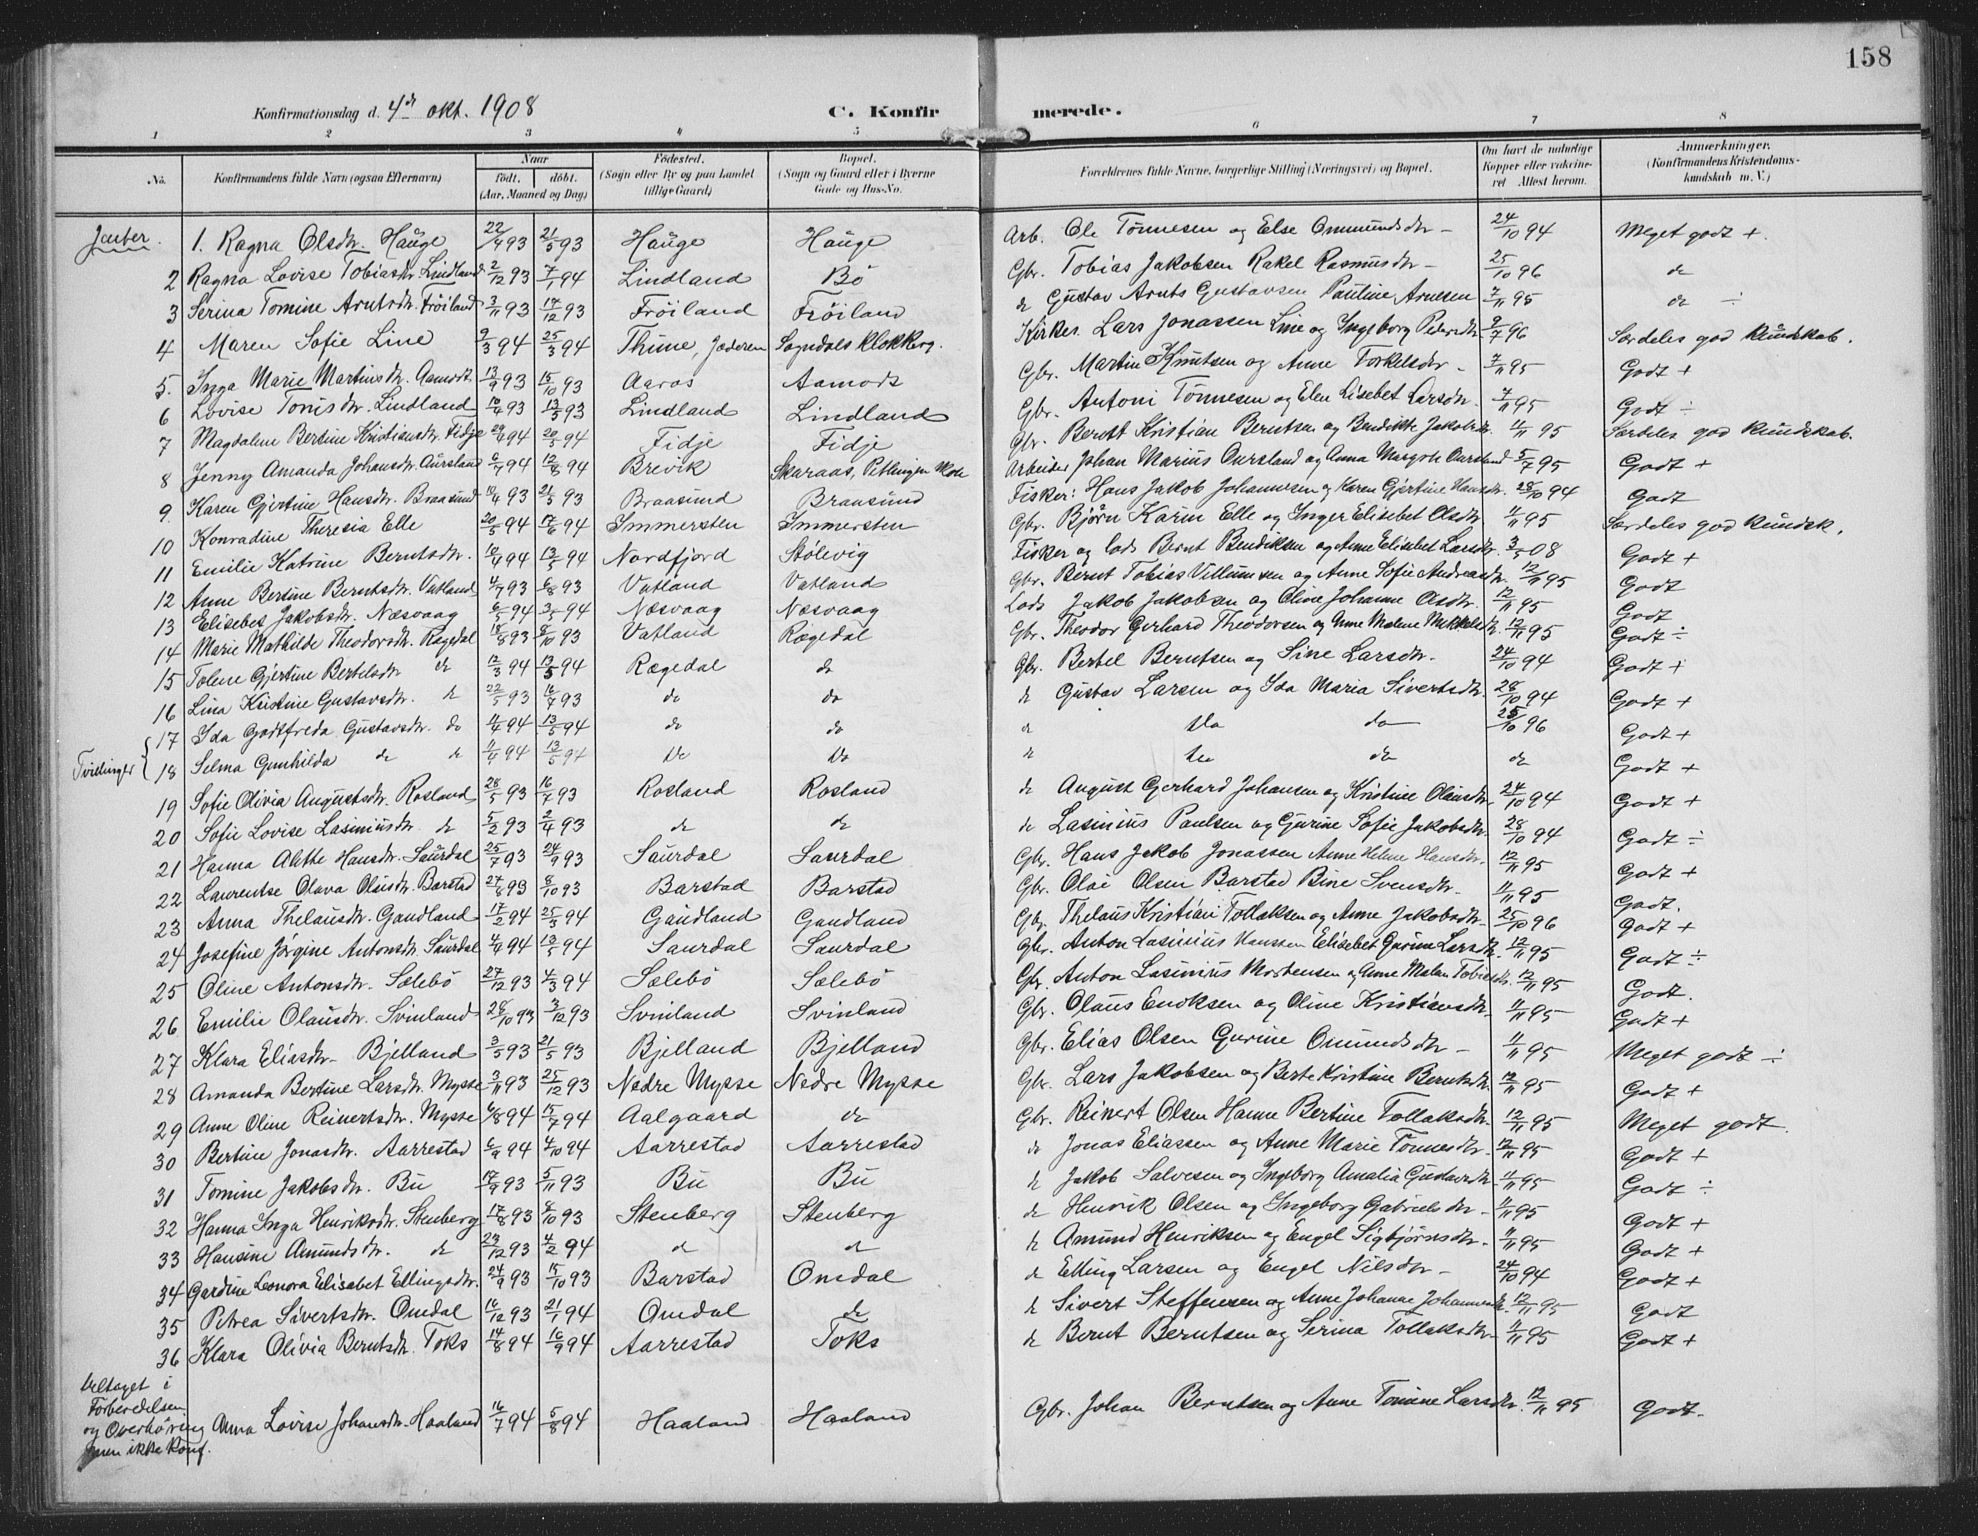 158
Konfirmationsdag d. 4de okt. 1908 C. Konfirmerede.
1 2 3 4 5 6 7 8
No. Konfirmandens fulde Navn (ogsaa Efternavn) Naar født. døbt. (Aar, Maaned og Dag) Fødested. (Sogn eller By og paa Landet tillige Gaard) Bopæl. (Sogn og Gaard eller i Byerne Gade og Hus-No. Forældrenes fulde Navne, borgerlige Stilling (Næringsvei) og Bopæl. Om havt de naturlige Kopper eller vaksineret Attest herom. Anmerkninger. (Konfirmandens Kristendomskundskab m. V.)
Jenter. 1. Ragna Olsdtr. Hauge 22/4 93 21/5 93 Hauge Hauge Arb. Ole Tönnesen og Else Ommundsdtr 24/10 94 Meget godt +
2 Ragna Lovise Tobiasdtr. Lindland 2/12 93 7/1 94 Lindland Bö Gbr. Tobias Jakobsen Rakel Rasmusdtr 25/10 96 do
3 Serina Tomine Arntsdtr. Fröiland 3/11 93 17/12 93 Fröiland Fröiland do Gustav Arnts Gustavsen Pauline Arnesen 7/11 95 do ÷
4 Maren Sofie Line 9/3 94 25/3 94 Thime, Jæderen Sogndals Klokkerg. Kirkes. Lars Jonassen Line og Ingeborg Pedersdtr 9/7 96 Særdeles god Kundskab.
5. Inga Marie Martinsdtr. Aamodt 13/9 93 15/10 93 Aaros Aamodt Gbr. Martin Knutsen og Anne Torkelsdtr 7/11 95 Godt +
6 Lovise Tonisdtr. Lindland 10/4 93 13/5 93 Lindland Lindland Gbr. Antoni Tönnesen og Elen Lisebet Larsdtr. 7/11 95 Godt ÷
7 Magdalene Bertine Kristiansdtr. Fidje 29/4 94 20/5 94 Fidje Fidje Gbr. Berntt Kristian Berntsen og Bendikte Jakobsdtr 11/11 95 Særdeles god Kundskab.
8 Jenny Amanda Johansdtr. Aursland 6/7 94 12/8 94 Brevik Skaraas, Arbeider Johan Marius Aursland og Anna Margrete Aursland 5/7 95 Godt +
9. Karen Gjertine Hansdtr. Braasund 10/4 93 21/5 93 Braasund Braasund Fisker: Hans Jakob Johannesen og Karen Gjertine Hansdtr. 28/10 94 Godt
10 Konradine Theresia Elle 20/5 94 17/6 94 Immersten Immersten Gbr. Bjørn Karin Elle og Inger Elisebet Olsdtr 11/11 95 Særdeles god Kundsk.
11 Emilie Katrine Berntsdtr. 10/4 94 13/5 94 Nordfjord Stölevig Fisker og lods Bernt Bendiksen og Anne Elisebet Larsdtr. 3/5 08 Godt +
12 Anne Bertine Berntsdtr. Vatland 4/7 93 6/8 93 Vatland Vatland Gbr. Bernt Tobias Villumsen og Anne Sofie Andreasdtr. 12/11 95 Godt
13 Elisebet Jakobsdtr. Næsvaag 6/5 94 3/5 94 Næsvaag Næsvaag Lods Jakob Jakobsen og Oline Johanne Olsdtr. 12/11 95 Godt
14 Marie Mathilde Theodorsdtr. Rægedal 15/8 93 8/10 93 Vatland Rægedal Gbr. Theodor Gerhard Theodorsen og Anne Malene Mikkelsdtr. 12/11 95 Godt ÷
15 Tolene Gjertine Bertelsdtr do 12/3 94 13/5 94 Rægedal do Gbr. Bertel Berntsen og Sine Larsdtr. 24/10 94 Godt +
16 Lina Kristine Gustavsdtr. do 22/5 93 16/7 93 do do do Gustav Larsen og Ida Maria Sivertsdtr. 28/10 94 Godt +
Tvillinger { 17 Ida Godtfreda Gustavsdtr. do 11/4 94 13/5 94 do do do do do 25/10 96 Godt +
18 Selma Gunhilda do do 11/4 94 13/5 94 do do do do do do Godt +
19 Sofie Olivia Augustsdtr. Rosland 28/5 93 16/7 93 Rosland Rosland do August Gerhard Johansen og Kristine Olausdtr. 24/10 94 Godt +
20 Sofie Lovise Lasiniusdtr. do 5/2 93 2/4 93 do do do Lasinius Paulsen og Gurine Sofie Jakobsdtr. 28/10 94 Godt ÷
21 Hanna Alethe Hansdtr. Saurdal 25/7 93 24/9 93 Saurdal Saurdal Gbr. Hans Jakob Jonassen Anne Helene Hansdtr. 12/11 95 Godt +
22 Laurentse Olava Olaisdtr. Barstad 27/8 93 8/10 93 Barstad Barstad Gbr. Olae Olsen Barstad Bine Svensdtr. 11/11 95 Godt.
23 Anna Thelausdtr. Gaudland 17/2 94 25/3 94 Gaudland Gaudland Gbr. Thelaus Kristian Tollaksen og Anne Jakobsdtr. 25/10 96 Godt +
24 Josefine Jörgine Antonsdtr. Saurdal 4/4 94 13/5 94 Saurdal Saurdal Gbr. Anton Lasinius Hanssen Elisebet Gurine Larsdtr. 12/11 95 Godt ÷
25 Oline Antonsdtr. Sælebö 27/12 93 4/3 94 Sælebö Sælebö Gbr. Anton Lasinius Mortensen og Anne Malene Tobiasdtr. 12/11 95 Godt.
26 Emilie Olausdtr. Svinland 28/10 93 3/12 93 Svinland Svinland Gbr. Olaus Enoksen og Oline Kristiansdtr. 11/11 95 Godt +
27 Klara Eliasdtr Bjelland 3/5 93 21/5 93 Bjelland Bjelland Gbr. Elias Olsen Gurine Omundsdtr 11/11 95 Meget godt ÷
28 Amanda Bertine Larsdtr. Mysse 3/11 93 25/12 93 Nedre Mysse Nedre Mysse Gbr. Lars Jakobsen og Berte Kristine Berntsdtr. 12/11 95 Godt +
29 Anne Oline Reinertsdtr. Mysse 6/8 94 15/7 94 Aalgaard do Gbr. Reinert Olsen Hanne Bertine Tollaksdtr. 12/11 95 Meget godt
30 Bertine Jonasdtr. Aarrestad 6/9 94 4/10 94 Aarrestad Aarrestad do Jonas Eliassen og Anne Marie Tönnesdtr. 12/11 95 Godt +
31 Tomine Jakobsdtr. Bu 17/9 93 5/11 93 Bu Bu do Jakob Salvesen og Ingeborg Amalia Gustavsdtr. 11/11 95 Godt ÷
32 Hanna Inga Henriksdtr. Stenberg 17/8 93 8/10 93 Stenberg Stenberg do Henrik Olsen og Ingeborg Gabrielsdtr. 11/11 95 Godt +
33 Hansine Amundsdtr. do 23/12 93 4/2 94 do do do Amund Henriksen og Engel Sigbjørnsdtr. 11/11 95 Godt +
34 Gardine Leonora Elisabet Ellingsdtr. 24/9 93 15/10 93 Barstad Omdal do Elling Larsen og Engel Nilsdtr 24/10 94 Godt +
35 Petrea Sivertsdtr. Omdal 16/12 93 21/1 94 Omdal do do Sivert Steffensen og Anne Johanne Johannesdtr. 12/11 95 Godt
36 Klara Olivia Berntsdtr. Toks 14/8 94 16/9 94 Aarrestad Toks do Bernt Berntsen og Serina Tollaksdtr 11/11 95 Godt +
Deltaget i
Forberedelsen
og Overhöring Anna Lovise Johansdtr. Haaland 16/7 94 5/8 94 Haaland Haaland Gbr. Johan Berntsen og Anne Tomine Larsdtr. 12/11 95 Godt.
men ikke Konf.